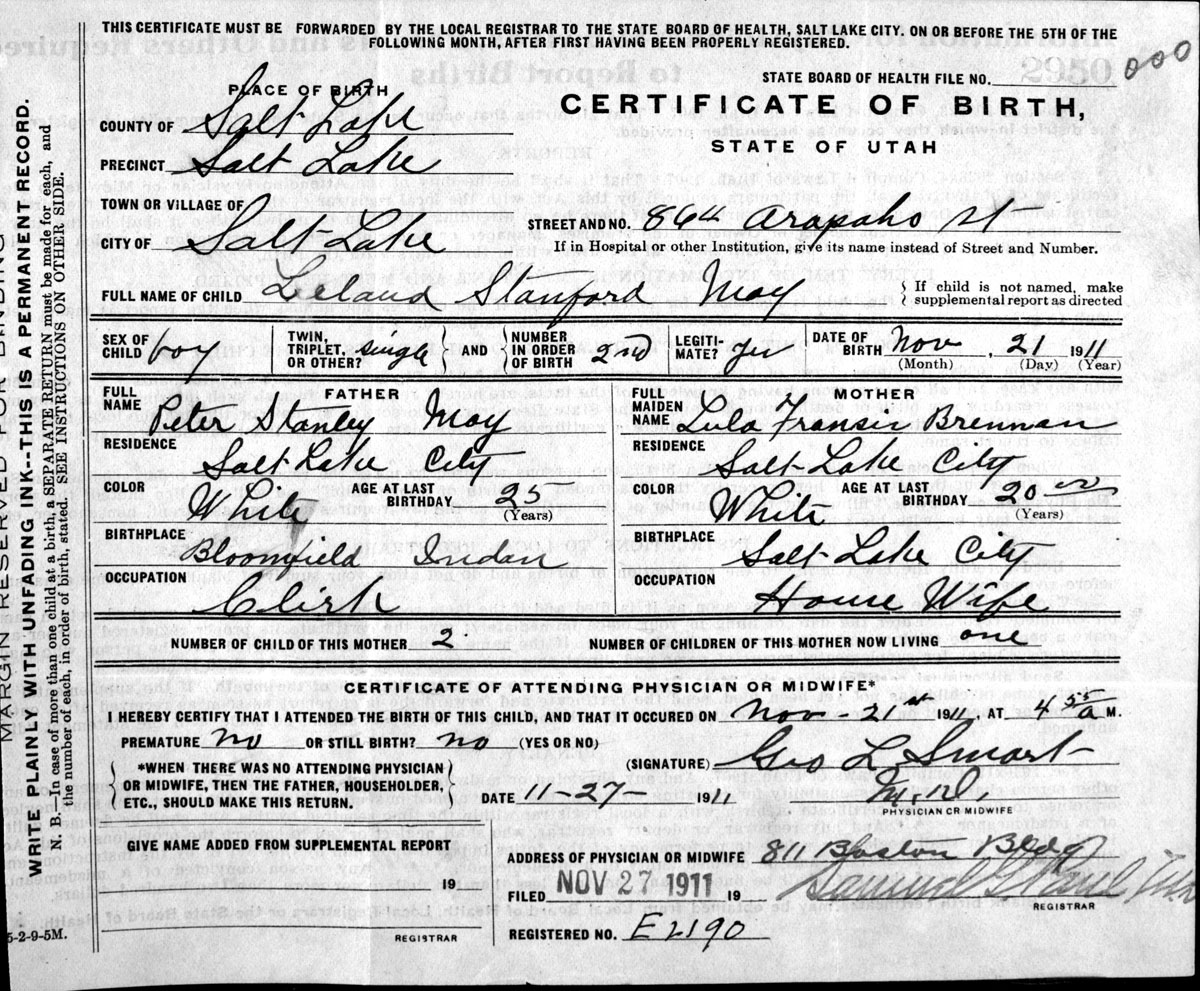 THIS CERTIFICATE MUST BE FORWARDED BY THE LOCAL REGISTRAR TO THE STATE BOARD OF HEALTH, SALT LAKE CITY. ON OR BEFORE THE 5TH OF THE
FOLLOWING MONTH, AFTER FIRST HAVING BEEN PROPERLY REGISTERED.
STATE BOARD OF HEALTH FILE NO. 000
PLACE OF BIRTH
CERTIFICATE OF BIRTH,
STATE OF UTAH
COUNTY OF Salt Lake
PRECINCT Salt Lake
TOWN OR VILLAGE OF
STREET AND NO. 864 Arapaho St
CITY OF Salt Lake
If in Hospital or other Institution, give its name instead of Street and Number.
FULL NAME OF CHILD Leland Stanford May
If child is not named, make
supplemental report as directed
SEX OF CHILD boy
TWIN, TRIPLET, OR OTHER? single
AND
NUMBER IN ORDER OF BIRTH 2nd
LEGITI-MATE? yes
DATE OF BIRTH Nov, 21 1911
(Month) (Day) (Year)
FATHER
FULL NAME Peter Stanley May
RESIDENCE Salt Lake City
COLOR White AGE AT LAST BIRTHDAY 25
(Years)
BIRTHPLACE Bloomfield Indan
OCCUPATION Clirk
MOTHER
FULL MAIDEN NAME Lula Fransis Brennan
RESIDENCE Salt Lake City
COLOR White AGE AT LAST BIRTHDAY 20
(Years)
BIRTHPLACE Salt Lake City
OCCUPATION House Wife
NUMBER OF CHILD OF THIS MOTHER 2 NUMBER OF CHILDREN OF THIS MOTHER NOW LIVING one
CERTIFICATE OF ATTENDING PHYSICIAN OR MIDWIFE*
I HEREBY CERTIFY THAT I ATTENDED THE BIRTH OF THIS CHILD, AND THAT IT OCCURED ON Nov-21st 1911, AT 4 55 a M.
PREMATURE no OR STILL BIRTH? no (YES OR NO)
(SIGNATURE) Geo L Smart
M.D.
PHYSICIAN OR MIDWIFE
*WHEN THERE WAS NO ATTENDING PHYSICIAN
OR MIDWIFE, THEN THE FATHER, HOUSEHOLDER,
ETC., SHOULD MAKE THIS RETURN.
DATE 11-27- 1911
GIVE NAME ADDED FROM SUPPLEMENTAL REPORT
19
REGISTRAR
ADDRESS OF PHYSICIAN OR MIDWIFE 811 Boston Bldg
FILED NOV 27 1911 19
REGISTRAR
REGISTERED NO. E2190
MARGIN RESERVED FOR BINDING
WRITE PLAINLY WITH UNFADING INK--THIS IS A PERMANENT RECORD.
N. B.—In case of more than one child at a birth, a SEPARATE RETURN must be made for each, and
the number of each, in order of birth, stated. SEE INSTRUCTIONS ON OTHER SIDE.
5-2-9-5M.